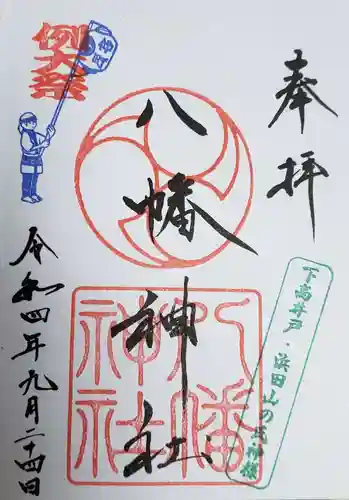 奉拝
八幡神社
八幡
神社
例大祭
下高井戸・浜田山の氏神様
令和四年九月二十四日